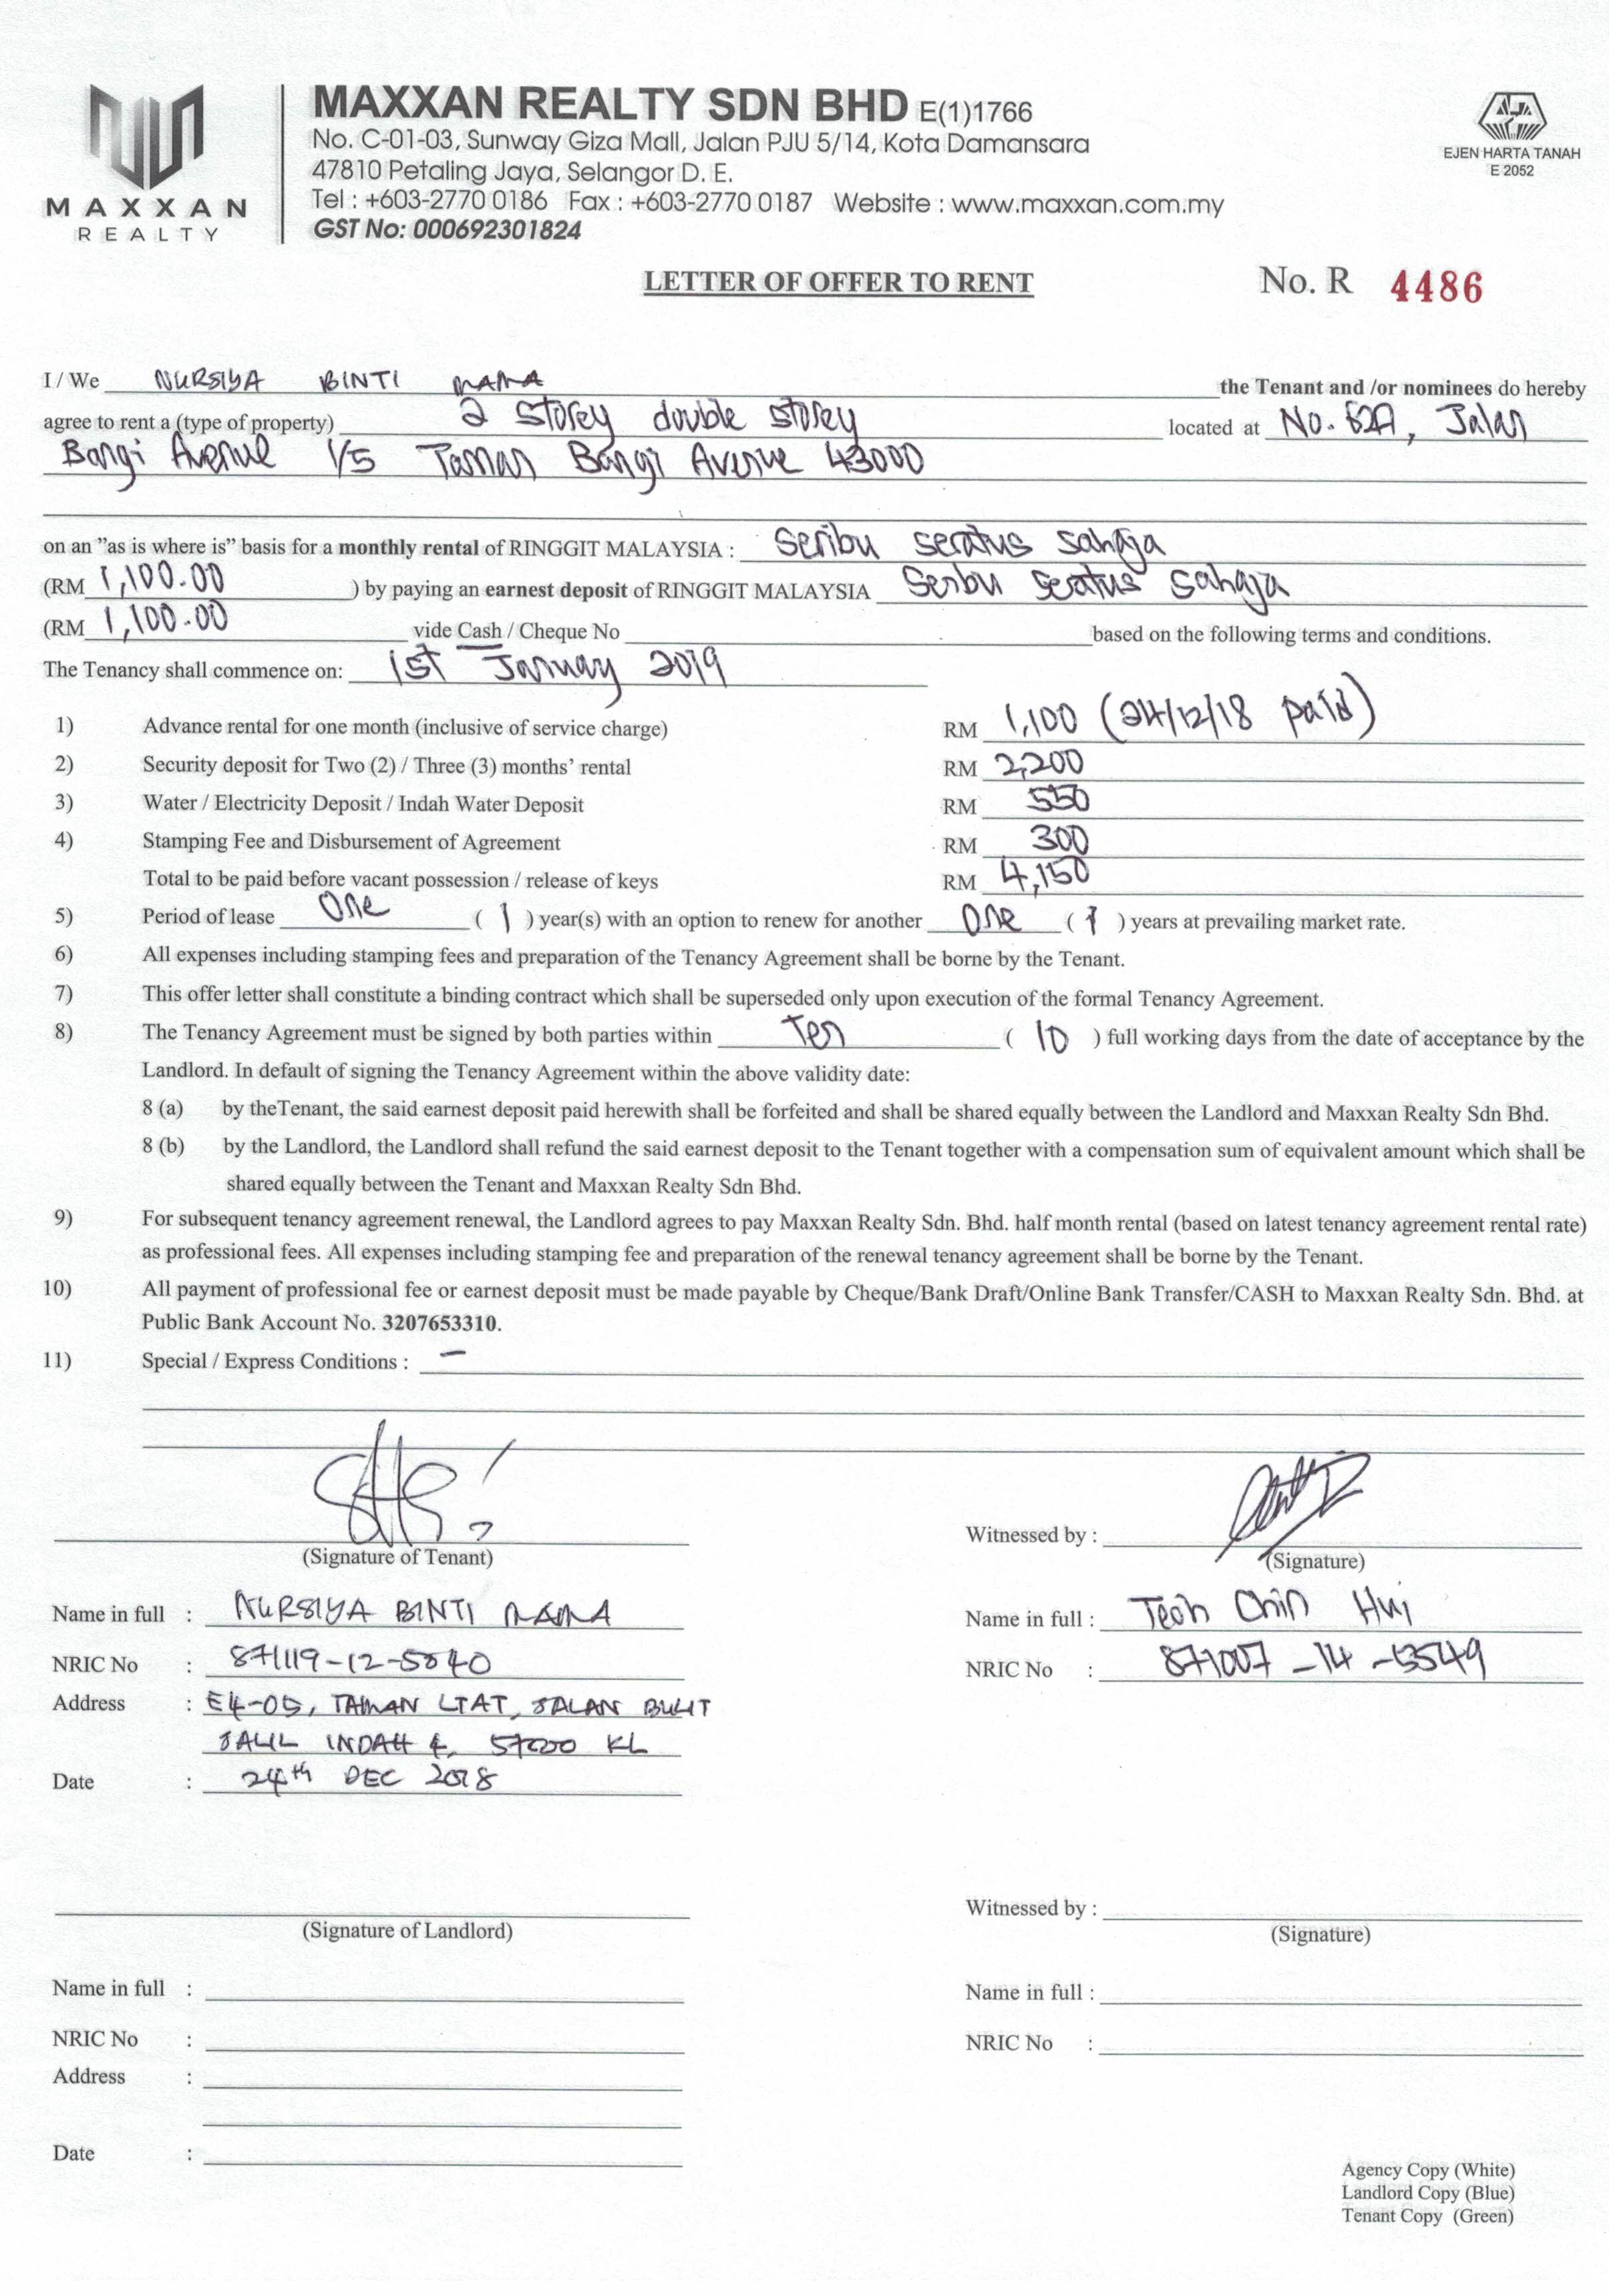 MAXXAN
REALTY
MAXXAN REALTY SDN BHD E(1)1766
No. C-01-03, Sunway Giza Mall, Jalan PJU 5/14, Kota Damansara
47810 Petaling Jaya, Selangor D. E.
Tel : +603-2770 0186 Fax : +603-2770 0187 Website : www.maxxan.com.my
GST No: 000692301824
EJEN HARTA TANAH
E 2052
LETTER OF OFFER TO RENT
No. R 4486
I / We NURSIYA BINTI the Tenant and /or nominees do hereby
agree to rent a (type of property) 2 storey double storey located at No. 52A, Jalan
Bangi Avenue 1/5 Taman Bangi Avenue 43000
on an "as is where is" basis for a monthly rental of RINGGIT MALAYSIA : Seribu seratus sahaja
(RM 1,100.00 ) by paying an earnest deposit of RINGGIT MALAYSIA Seribu seratus sahaja
(RM 1,100.00 vide Cash / Cheque No based on the following terms and conditions.
The Tenancy shall commence on: 1st January 2019
1) Advance rental for one month (inclusive of service charge) RM 1,100 (24/12/18 paid)
2) Security deposit for Two (2) / Three (3) months' rental RM 2,200
3) Water / Electricity Deposit / Indah Water Deposit RM 550
4) Stamping Fee and Disbursement of Agreement RM 300
Total to be paid before vacant possession / release of keys RM 4,150
5) Period of lease One ( 1 ) year(s) with an option to renew for another One ( 1 ) years at prevailing market rate.
6) All expenses including stamping fees and preparation of the Tenancy Agreement shall be borne by the Tenant.
7) This offer letter shall constitute a binding contract which shall be superseded only upon execution of the formal Tenancy Agreement.
8) The Tenancy Agreement must be signed by both parties within Ten ( 10 ) full working days from the date of acceptance by the
Landlord. In default of signing the Tenancy Agreement within the above validity date:
8 (a) by theTenant, the said earnest deposit paid herewith shall be forfeited and shall be shared equally between the Landlord and Maxxan Realty Sdn Bhd.
8 (b) by the Landlord, the Landlord shall refund the said earnest deposit to the Tenant together with a compensation sum of equivalent amount which shall be
shared equally between the Tenant and Maxxan Realty Sdn Bhd.
9) For subsequent tenancy agreement renewal, the Landlord agrees to pay Maxxan Realty Sdn. Bhd. half month rental (based on latest tenancy agreement rental rate)
as professional fees. All expenses including stamping fee and preparation of the renewal tenancy agreement shall be borne by the Tenant.
10) All payment of professional fee or earnest deposit must be made payable by Cheque/Bank Draft/Online Bank Transfer/CASH to Maxxan Realty Sdn. Bhd. at
Public Bank Account No. 3207653310.
11) Special / Express Conditions : –
Witnessed by :
(Signature of Tenant) (Signature)
Name in full : NURSIYA BINTI
Name in full : Teoh Chin Hui
NRIC No : 871119-12-5840
NRIC No : 871007-14-5549
Address : E4-05, TAMAN LTAT, JALAN BUKIT
JALIL INDAH 4, 57000 KL
Date : 24th DEC 2018
Witnessed by :
(Signature of Landlord) (Signature)
Name in full :
Name in full :
NRIC No :
NRIC No :
Address :
Date :
Agency Copy (White)
Landlord Copy (Blue)
Tenant Copy (Green)